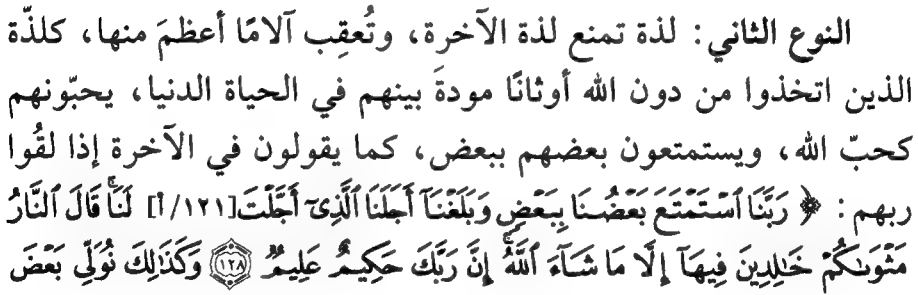 النوع الثاني: لذة تمنع لذة الآخرة، وتُعقِب آلامًا أعظمَ منها، كلذّة
الذين اتخذوا من دون الله أوثانًا مودةَ بينهم في الحياة الدنيا، يحبّونهم
كحبّ الله، ويستمتعون بعضهم ببعض، كما يقولون في الآخرة إذا لقُوا
ربهم: ﴿ رَبَّنَا ٱسْتَمْتَعَ بَعْضُنَا بِبَعْضٍ وَبَلَغْنَآ أَجَلَنَا ٱلَّذِىٓ أَجَّلْتَ [١٢١/أ] لَنَاۚ قَالَ ٱلنَّارُ
مَثْوَىٰكُمْ خَٰلِدِينَ فِيهَآ إِلَّا مَا شَآءَ ٱللَّهُۗ إِنَّ رَبَّكَ حَكِيمٌ عَلِيمٌ ﴿١٢٨﴾ وَكَذَٰلِكَ نُوَلِّى بَعْضَ